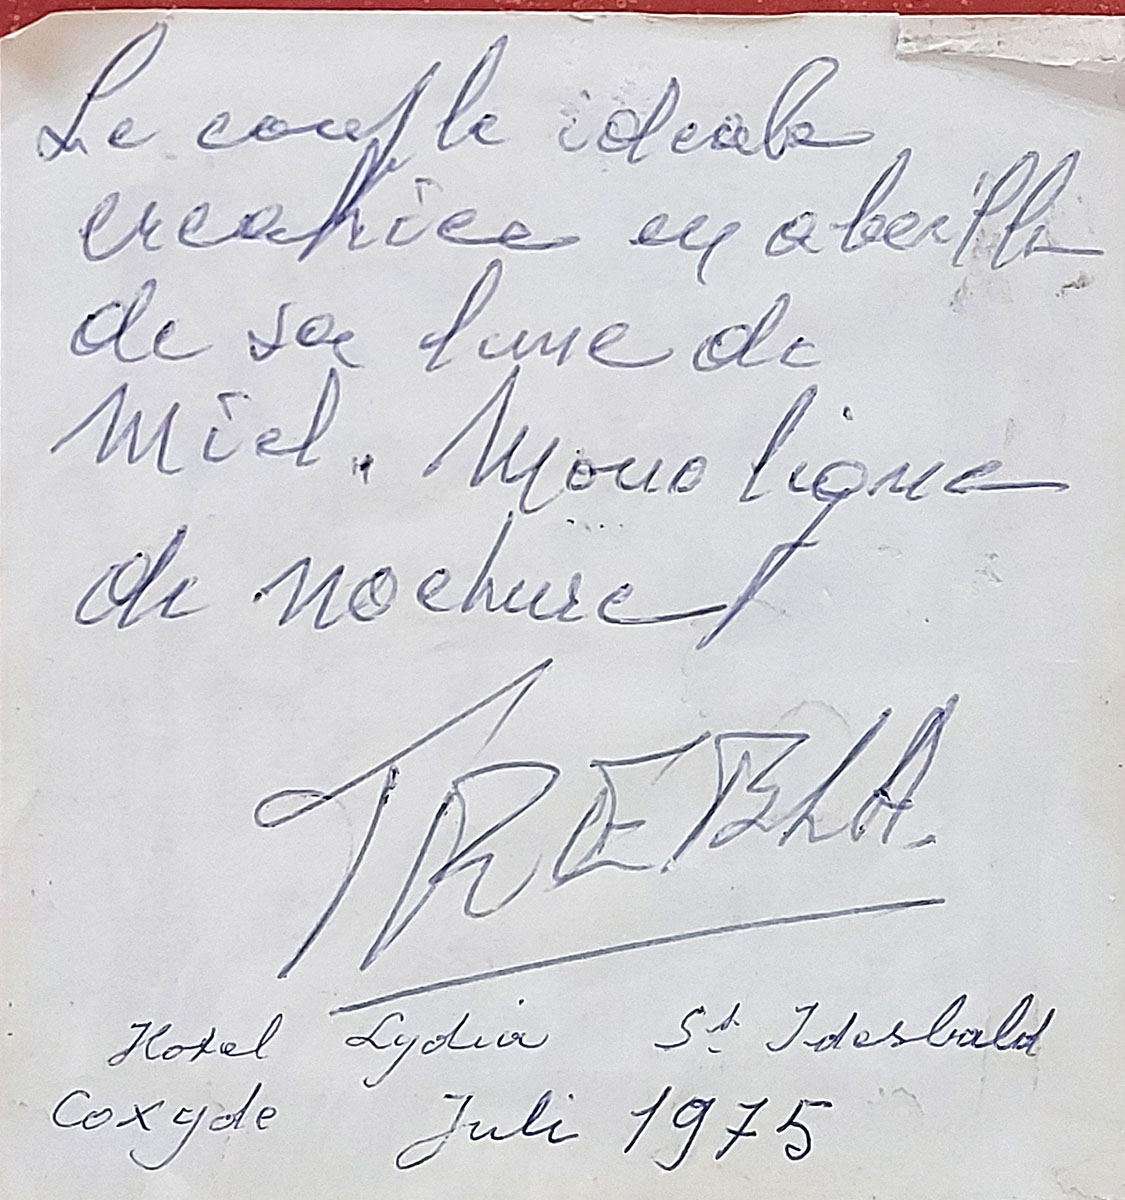 Le couple ideale
creatice en abeille
de sa lune de
Miel. Mono ligne
de nochure
TREBLA.
Hotel Lydia St Idesbald
Coxyde Juli 1975